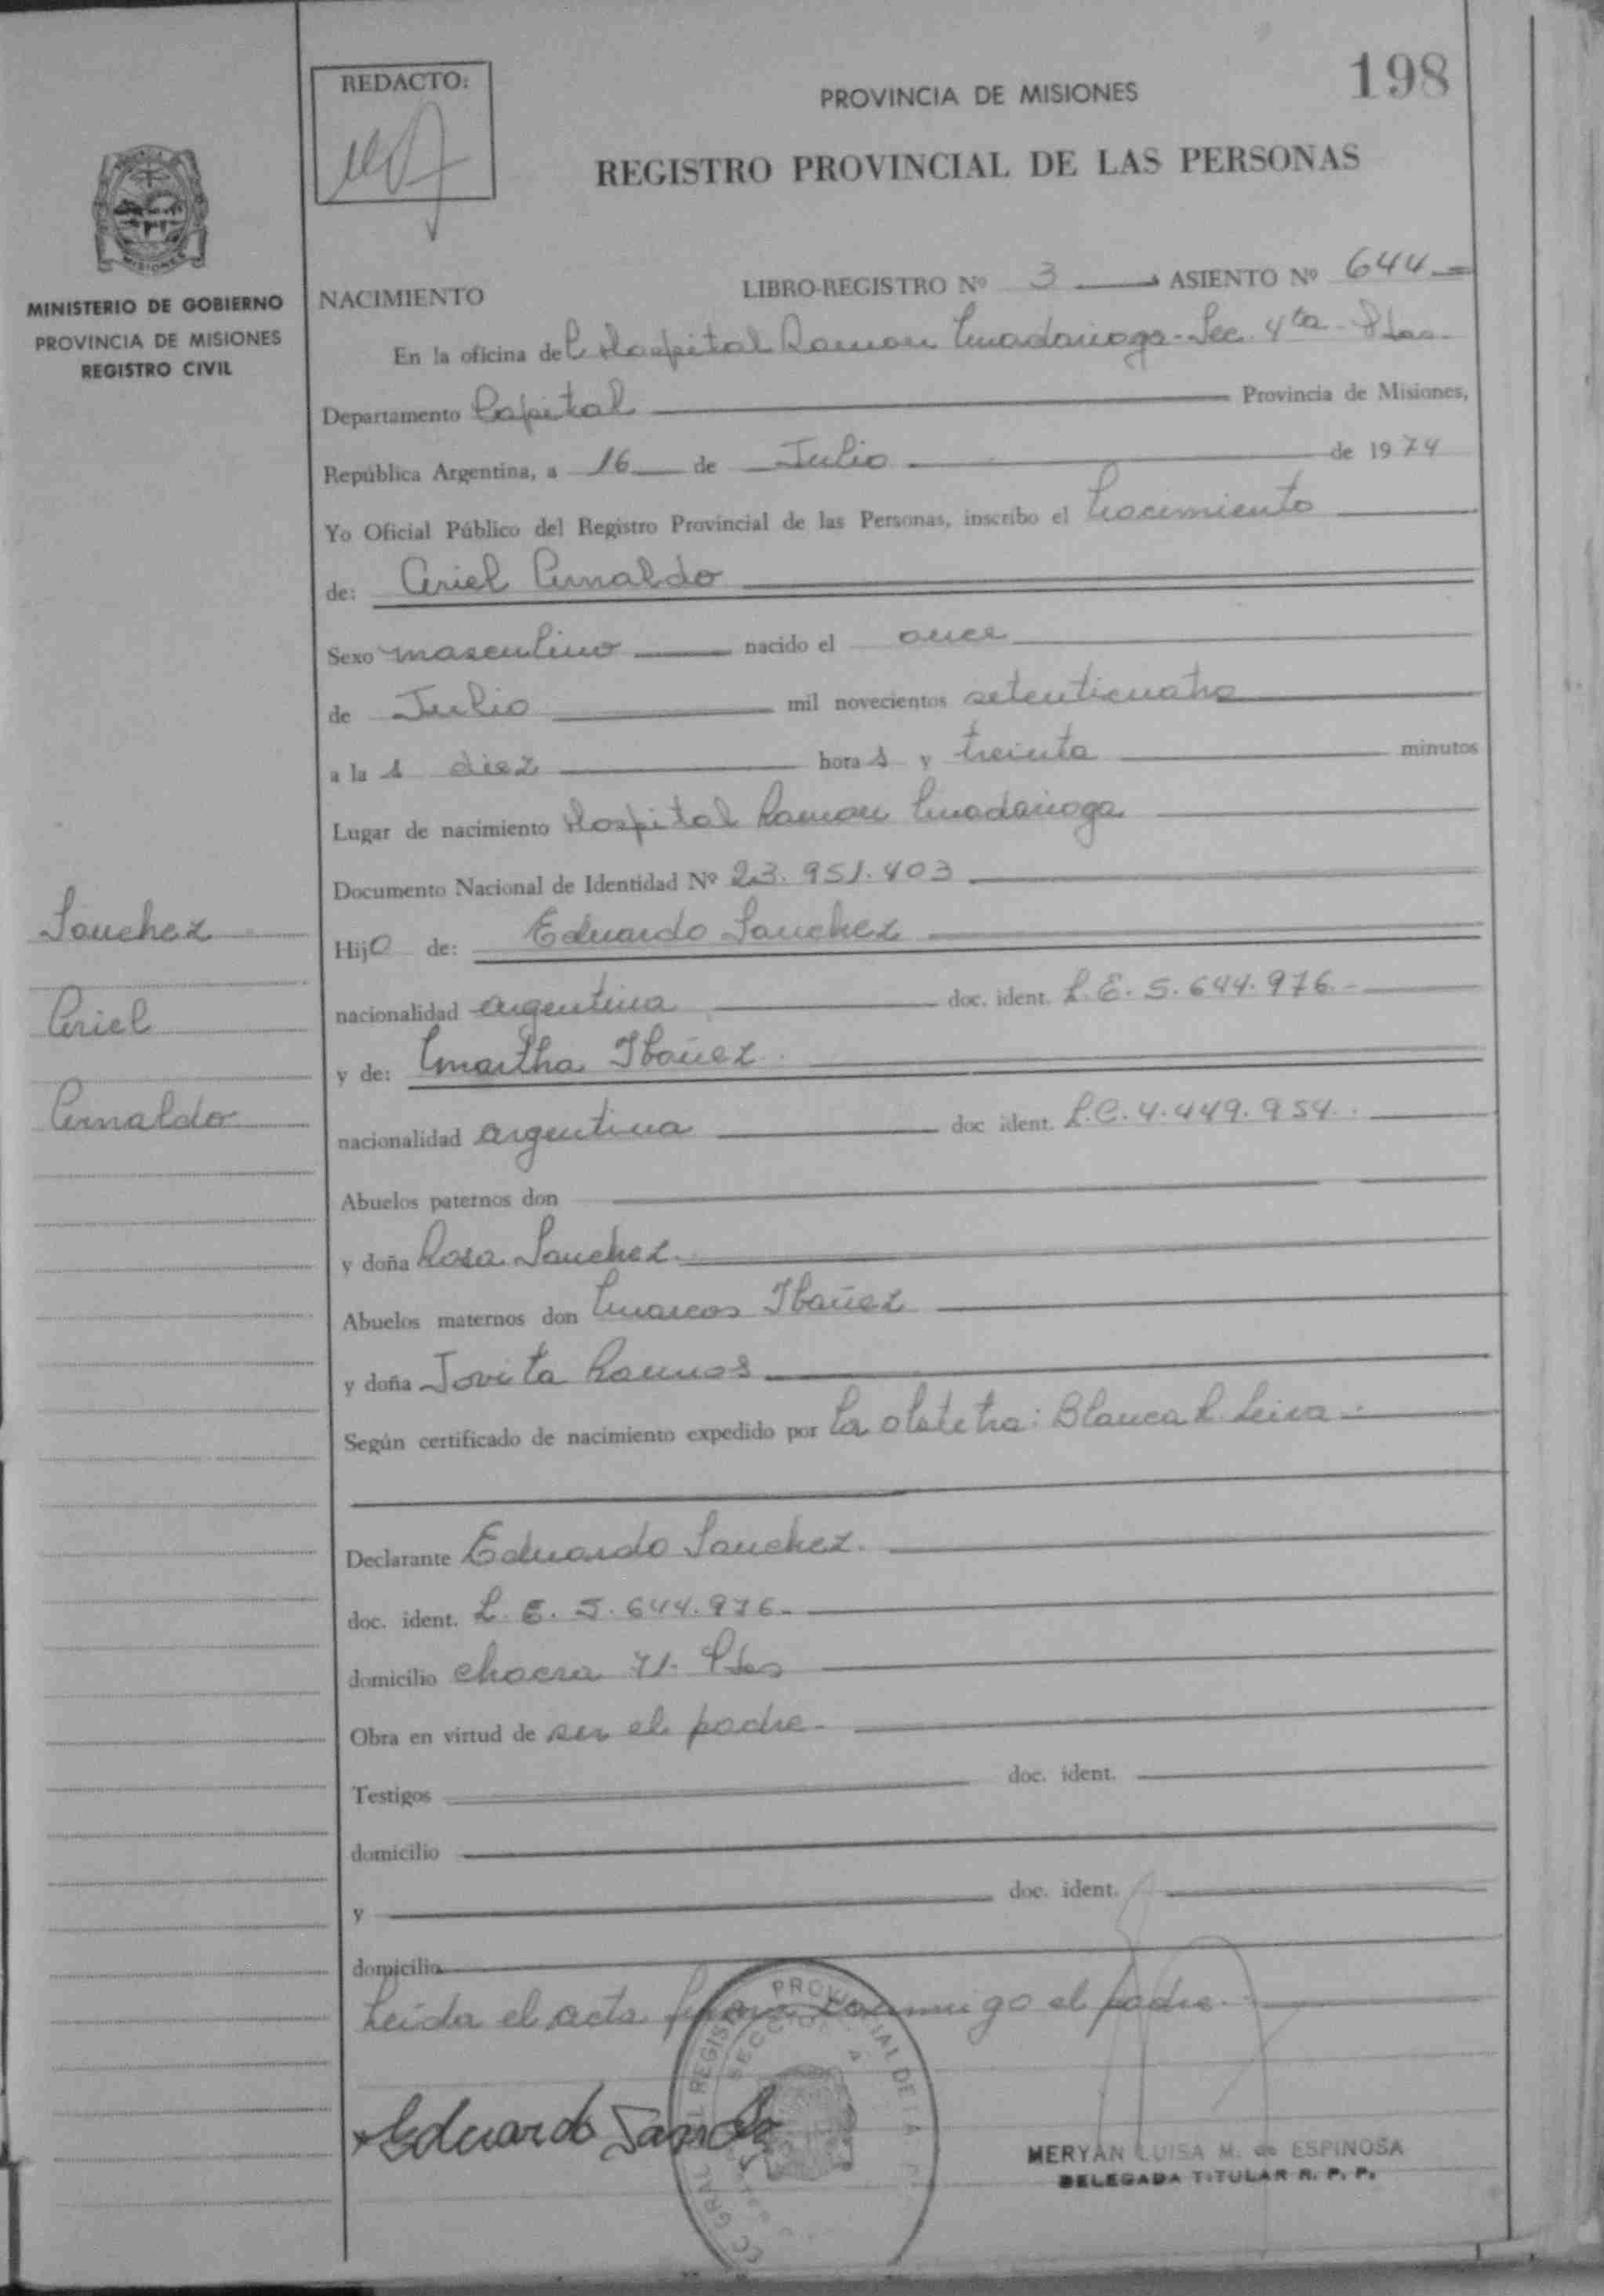 198
REDACTO:
PROVINCIA DE MISIONES
REGISTRO PROVINCIAL DE LAS PERSONAS
MISIONES
MINISTERIO DE GOBIERNO
PROVINCIA DE MISIONES
REGISTRO CIVIL
NACIMIENTO LIBRO-REGISTRO Nº 3 ASIENTO Nº 644
En la oficina del Hospital Ramon Madariaga - Sec. 4ta - Pdas.
Departamento Capital Provincia de Misiones,
República Argentina, a 16 de Julio de 1974
Yo Oficial Público del Registro Provincial de las Personas, inscribo el Nacimiento
de: Ariel Arnaldo
Sexo masculino nacido el once
de Julio mil novecientos setenticuatro
a la s diez hora s y treinta minutos
Lugar de nacimiento Hospital Ramon Madariaga
Documento Nacional de Identidad Nº 23.951.403
Sanchez
Ariel
Arnaldo
Hijo de: Eduardo Sanchez
nacionalidad argentina doc. ident. L.E. 5.644.976.-
y de: Martha Ibañez
nacionalidad argentina doc ident. L.C. 4.449.954.
Abuelos paternos don
y doña Rosa Sanchez
Abuelos maternos don Marcos Ibañez
y doña Jovita Ramos
Según certificado de nacimiento expedido por la obstetra: Blanca R. Leiva
Declarante Eduardo Sanchez.
doc. ident. L.E. 5.644.976.-
domicilio chacra 71- Pdas
Obra en virtud de ser el padre.-
Testigos doc. ident.
domicilio
y doc. ident.
domicilio
Leida el acta firma conmigo el padre.
Eduardo Sanchez
MERYAN LUISA M. de ESPINOSA
DELEGADA TITULAR R. P. P.